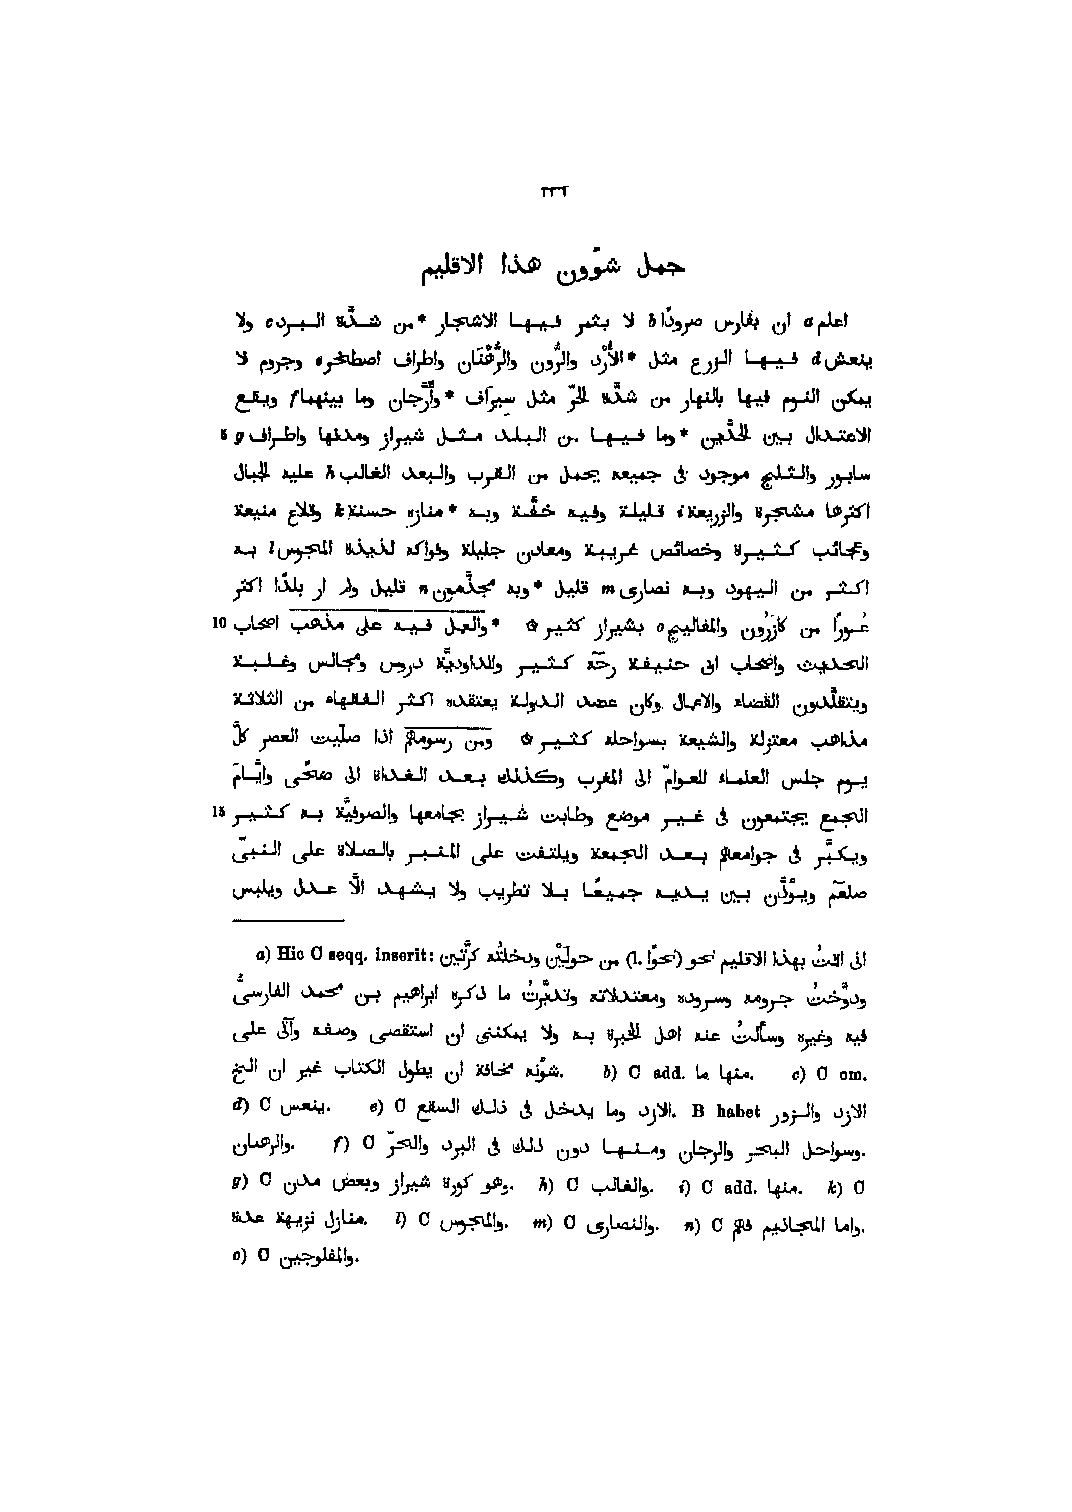 ٤٣٩
جمل شؤّون هذا الاقليم
اعلم a ان بفارس صرودًا b لا يثمر فيها الاشجار *من شدّة البرد c ولا
ينعش d فيها الزرع مثل *الأَرْد والرُّون والرُّهْنَان واطراف اصطخر e وجروم لا
يمكن النوم فيها بالنهار من شدّة الحرّ مثل سيراف *وأَرَّجان وما بينهما f ويقع
الاعتدال بين الحدَّين *وما فيها من البلد مثل شيراز ومدنها واطراف g 5
سابور والثلج موجود فى جميعه يحمل من القرب والبعد الغالب h عليه الجبال
اكثرها مشجرة والزريعة i قليلة وفيه خفّة وبه *منازه حسنة k وقلاع منيعة
وعجائب كثيرة وخصائص غريبة ومعادن جليلة وفواكه لذيذة المجوس l به
اكثر من اليهود وبه نصارى m قليل *وبه مجذَّمون n قليل ولم ار بلدًا اكثر
عُورًا من كازَرُون والمفاليج o بشيراز كثير ۞ *والعمل فيه على مذهب اصحاب 10
الحديث واصحاب ابى حنيفة رحّه كثير والداوديَّة دروس ومجالس وغلبة
ويتقلَّدون القضاء والاعمال وكان عضد الدولة يعتقده اكثر الفقهاء من الثلاثة
مذاهب معتزلة والشيعة بسواحله كثير ۞ ومن رسومهم اذا صلّيت العصر كلَّ
يوم جلس العلماء للعوامّ الى المغرب وكذلك بعد الغداة الى ضحًى وايَّامَ
الجمع يجتمعون فى غير موضع وطابت شيراز بجامعها والصوفيَّة به كثير 15
ويكبَّر فى جوامعهم بعد الجمعة ويلتفت على المنبر بالصلاة على النبىّ
صلعم ويؤذَّن بين يديه جميعًا بلا تطريب ولا يشهد الَّا عدل ويلبس
a) Hic C seqq. inserit: انى اقمتُ بهذا الاقليم نحو (l. نحوًا) من حولَيْن ودخلتُه كرَّتَين
ودوَّختُ جرومه وسروده ومعتدلاته وتدبَّرتُ ما ذكره ابراهيم بن محمد الفارسىُّ
فيه وغيره وسألتُ عنه اهل الخبرة به ولا يمكننى ان استقصى وصفه وآتى على
شؤنه مخافة ان يطول الكتاب غير ان الخ. b) C add. منها ما. c) C om.
d) C ينعس. e) C الارد وما يدخل فى ذلك السقع. B habet الارد والزور
والرهنان. f) C وسواحل البحر والرجان ومنها دون ذلك فى البرد والحرّ.
g) C وهو كورة شيراز وبعض مدن. h) C والغالب. i) C add. منها. k) C
منازل نزيهة عدة. l) C والمجوس. m) C والنصارى. n) C واما المجاذيم فلم.
o) C والمفلوجين.